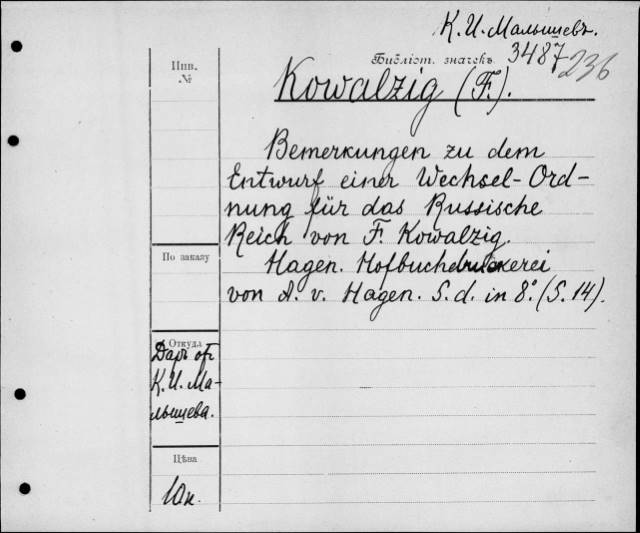 К. И. Малышевъ.
Библіот. значекъ 3487
236
Инв.
№
Kowalzig (F.).
Bemerkungen zu dem
Entwurf einer Wechsel-Ord-
nung für das Russische
Reich von F. Kowalzig.
По заказу
Hagen. Hofbuchdruckerei
von A. v. Hagen. S. d. in 8°. (S. 14).
Откуда
Даръ от
К. И. Ма-
лышева.
Цѣна
10к.